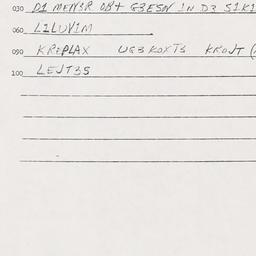 030 D1 MEN3R OB+ G3ESN 1N D3 S1K1
060 L1LUV1M
090 KREPLAX UG3KOXT3 KROJT (
100 LEJT3S